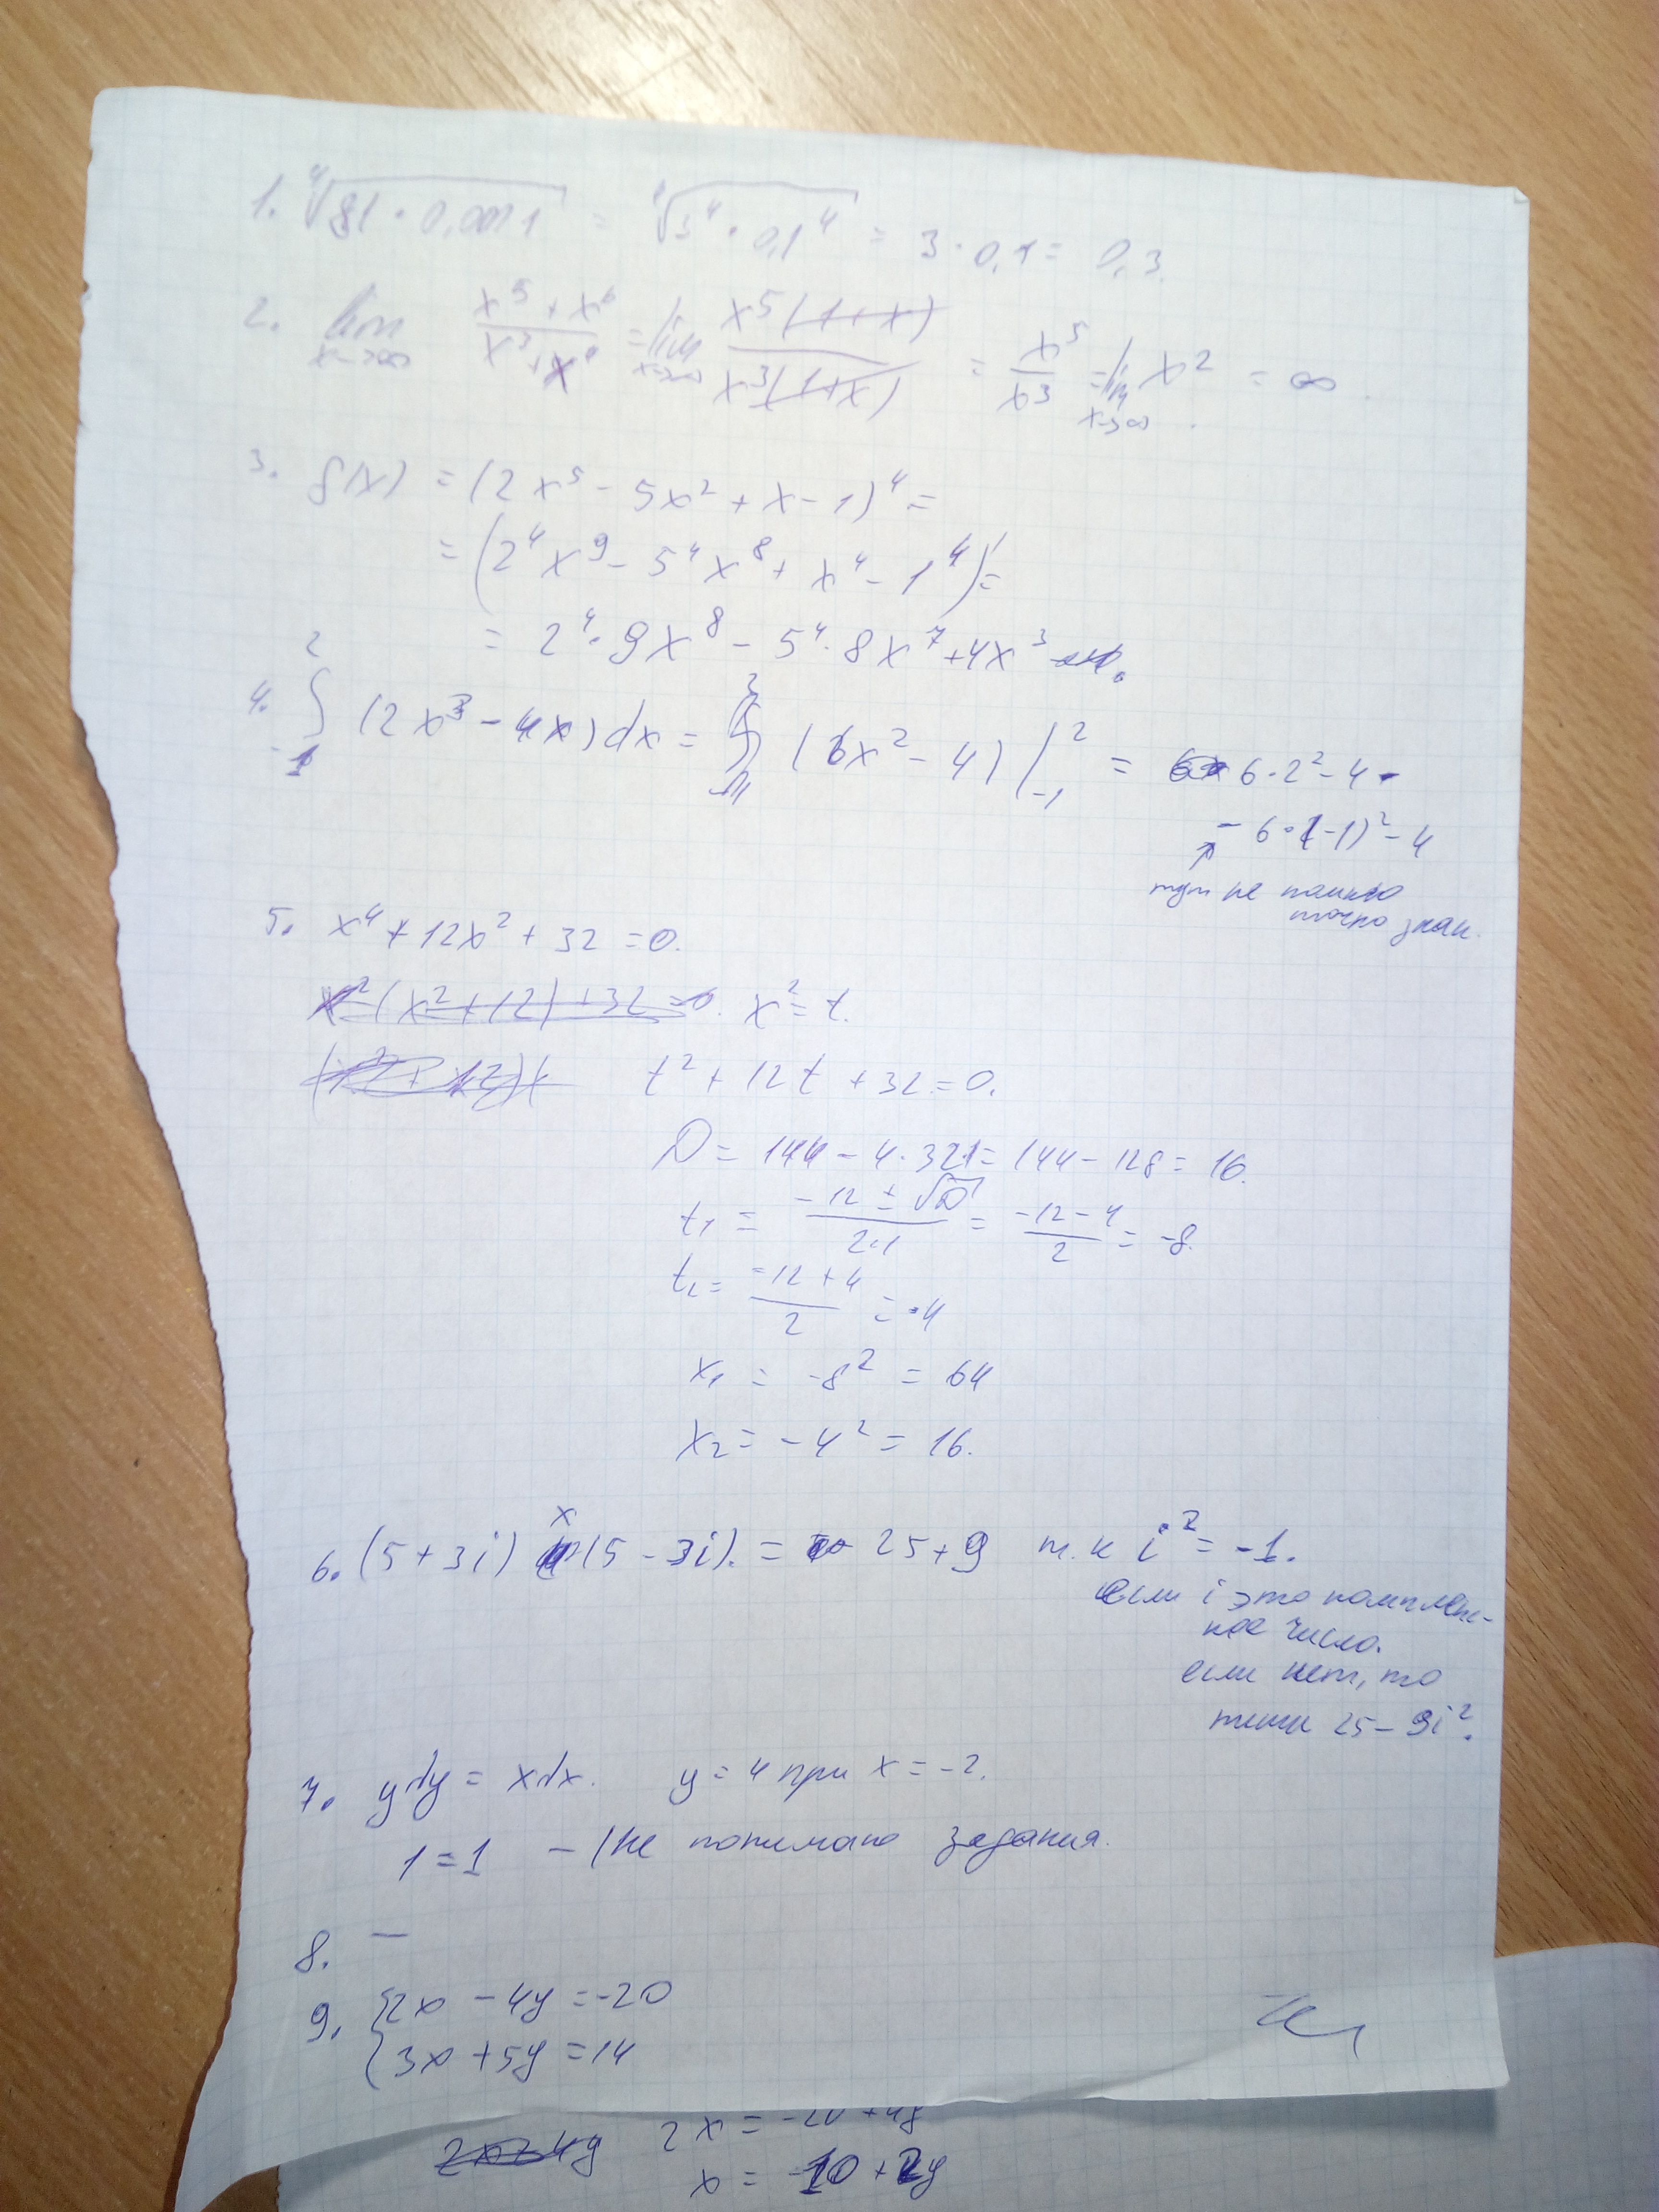 1. ⁴√(81 · 0,0001) = ⁴√(3⁴ · 0,1⁴) = 3 · 0,1 = 0,3.
2. lim x→∞ (x⁵ + x⁶)/(x³ + x⁴) = lim x→∞ x⁵(1+x)/x³(1+x) = x⁵/x³ = lim x→∞ x² = ∞.
3. f(x) = (2x⁵ - 5x² + x - 1)⁴ =
= (2⁴x⁹ - 5⁴x⁸ + x⁴ - 1⁴)' =
= 2⁴·9x⁸ - 5⁴·8x⁷ + 4x³
4. ∫₋₁² (2x³ - 4x)dx = (6x² - 4)|₋₁² = 6·2² - 4 -
- 6·(-1)² - 4
тут не помню
точно знак.
5. x⁴ + 12x² + 32 = 0.
x²(x² + 12) + 32 = 0. x² = t.
t² + 12t + 32 = 0.
D = 144 - 4·32·1 = 144 - 128 = 16.
t₁ = (-12 ± √D)/(2·1) = (-12 - 4)/2 = -8.
t₂ = (-12 + 4)/2 = -4
x₁ = -8² = 64
x₂ = -4² = 16.
6. (5 + 3i) x (5 - 3i). = 25 + 9 т.к i² = -1.
если i это комплекс-
ное число.
если нет, то
25 - 9i².
7. ydy = xdx. y = 4 при x = -2.
1 = 1 - не понимаю задания.
8. —
9. {2x - 4y = -20
{3x + 5y = 14
2x = -20 + 4y
x = -10 + 2y